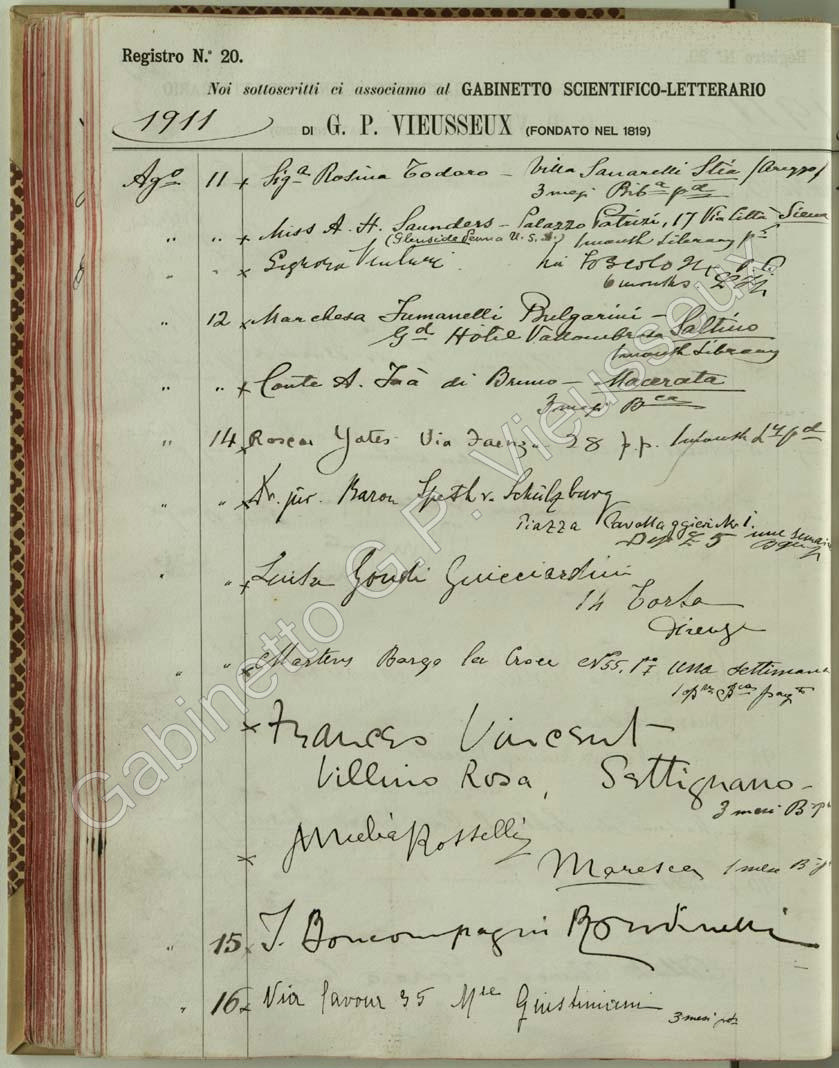 Registro N.° 20.
Noi sottoscritti ci associamo al GABINETTO SCIENTIFICO-LETTERARIO
1911
DI G. P. VIEUSSEUX (FONDATO NEL 1819)
Agº 11 x Sigª Rosina Todaro — Villa Sanarelli Stia (Arezzo)
3 mesi Bibª pª
" " x Miss A. H. Saunders — Palazzo Patrizi, 17 Via Città Siena
(Glenside Penna U. S. A.) 1 month Library pd
" " x Signora Venturi Via Foscolo
6 months
" 12 x Marchesa Fumanelli Bulgarini —
Gd Hôtel Vallombrosa Saltino
1 month Library
" " x Conte A. Faà di Bruno — Macerata
3 mesi Bca
" 14 x Rosca Yates Via Faenza 28 p.p. 1 month pd
" " x Dr. jur. Baron Speth v. Schülzburg
Piazza Cavalleggieri No 1.
Dep 5 une semaine
" " x Luisa Gondi Guicciardini
14 Torta
Firenze
" " x Martens Borgo la Croce No 55, 1º una settimana
x Frances Vincent
Villino Rosa, Settignano —
3 mesi B
x Amelia Rosselli
Maresca 1 mese B
" 15 x F. Boncompagni Rondinelli
" 16 x Via Cavour 35 Mse Giustiniani
3 mesi
Gabinetto G.P. Vieusseux